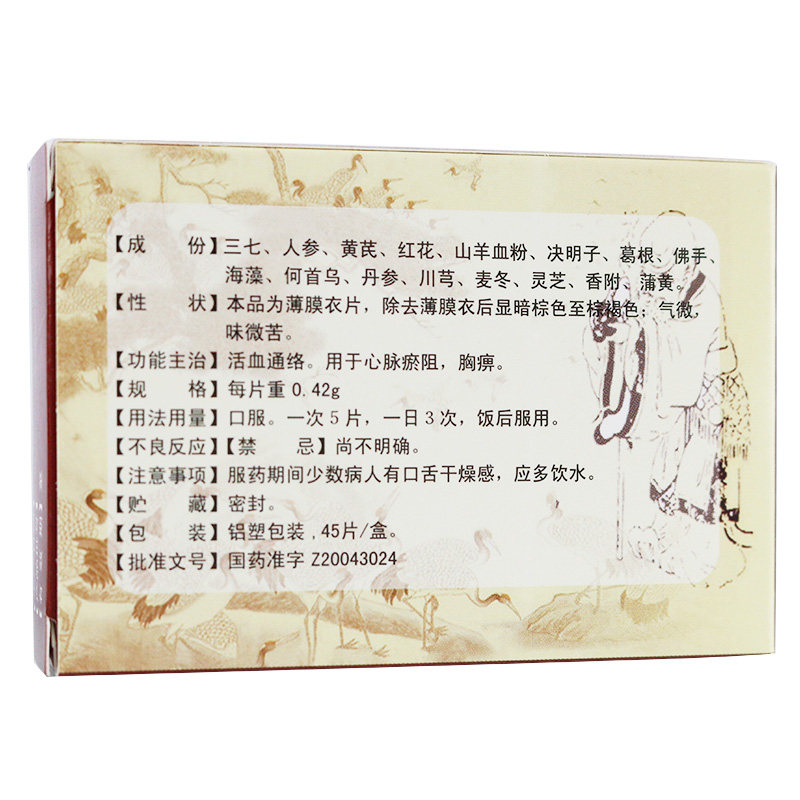 【成　份】三七、人参、黄芪、红花、山羊血粉、决明子、葛根、佛手、
海藻、何首乌、丹参、川芎、麦冬、灵芝、香附、蒲黄。
【性　状】本品为薄膜衣片，除去薄膜衣后显暗棕色至棕褐色；气微，
味微苦。
【功能主治】活血通络。用于心脉瘀阻，胸痹。
【规　格】每片重 0.42g
【用法用量】口服。一次 5 片，一日 3 次，饭后服用。
【不良反应】【禁　忌】尚不明确。
【注意事项】服药期间少数病人有口舌干燥感，应多饮水。
【贮　藏】密封。
【包　装】铝塑包装，45片/盒。
【批准文号】国药准字 Z20043024